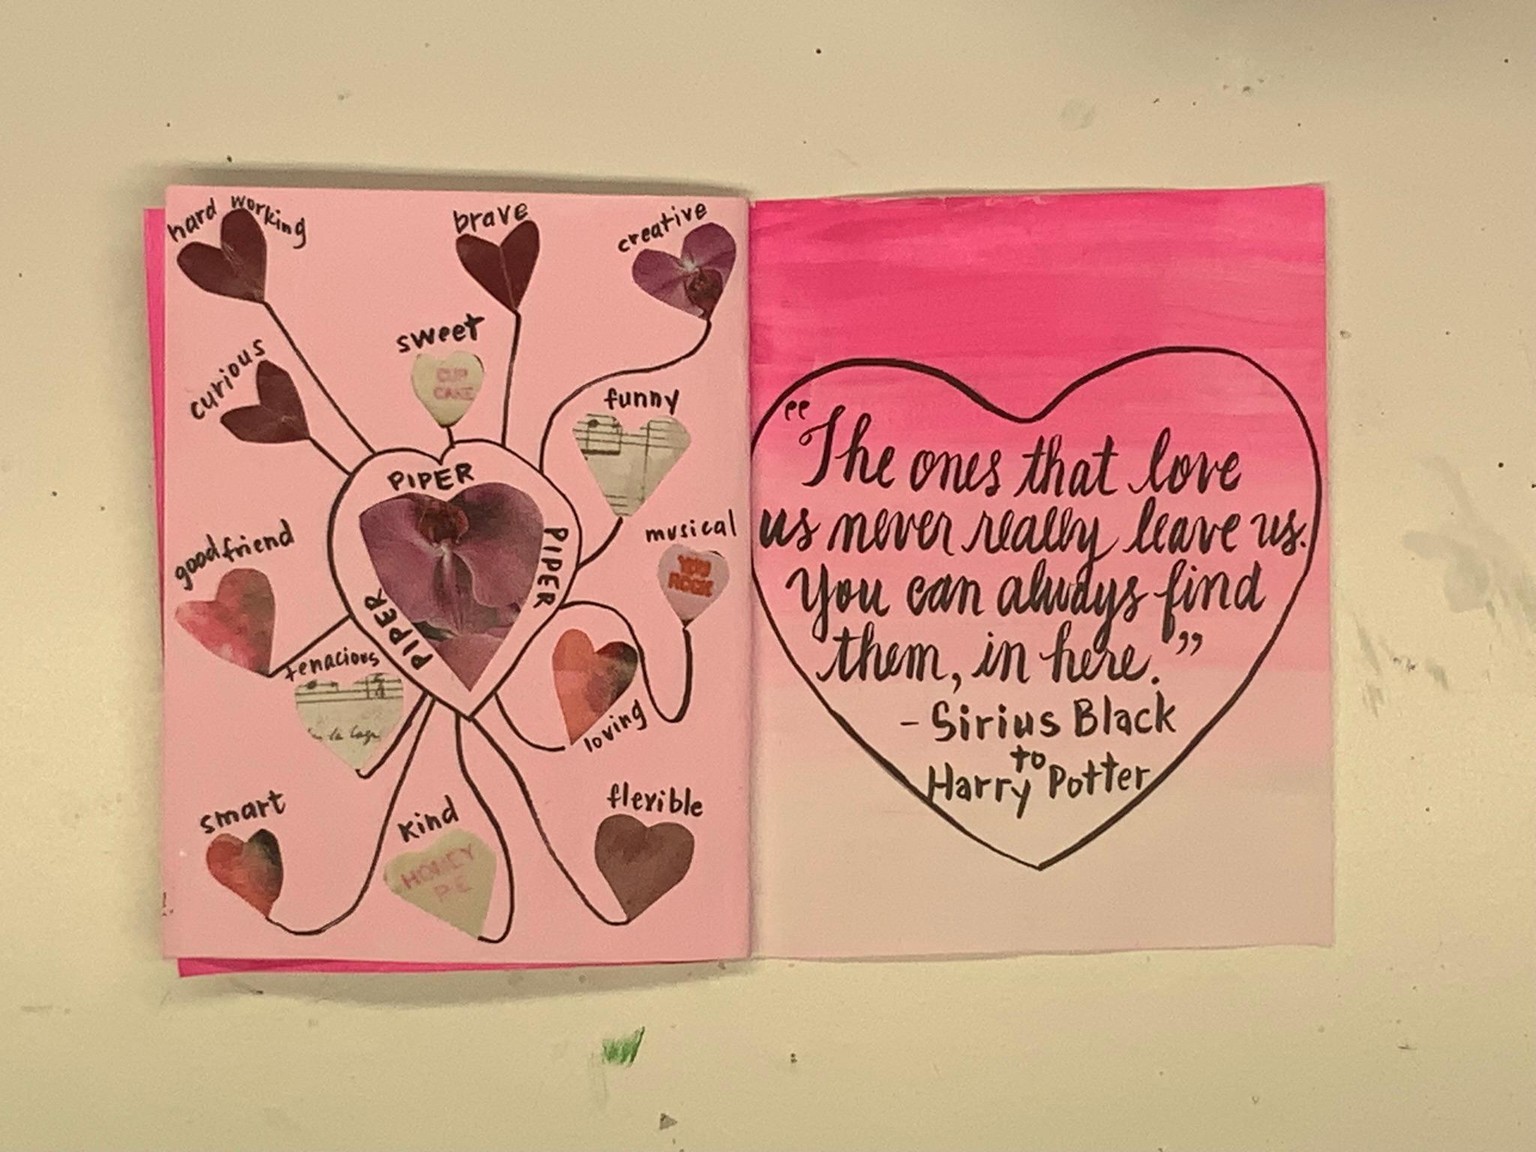 hard working
brave
creative
sweet
CUP
CAKE
curious
funny
PIPER
PIPER
PIPER
musical
YOU
ROCK
good friend
tenacious
loving
smart
kind
HONEY
PIE
flexible
"The ones that love
us never really leave us.
You can always find
them, in here."
- Sirius Black
to
Harry Potter